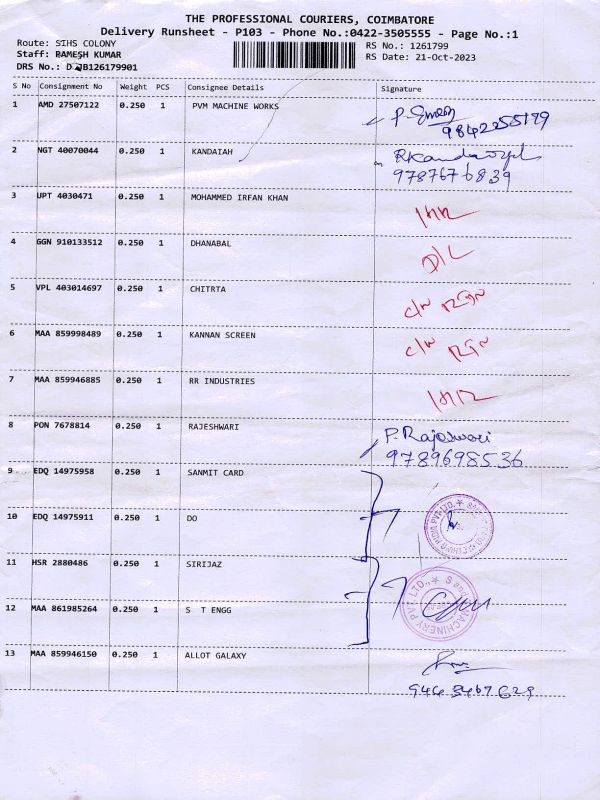 THE PROFESSIONAL COURIERS, COIMBATORE
Delivery Runsheet - P103 - Phone No.:0422-3505555 - Page No.:1
Route: SIHS COLONY
RS No.: 1261799
Staff: RAMESH KUMAR
RS Date: 21-Oct-2023
DRS No.: B126179901
S No Consignment No Weight PCS Consignee Details Signature
1 AMD 27507122 0.250 1 PVM MACHINE WORKS
2 NGT 40070044 0.250 1 KANDAIAH
9787676839
3 UPT 4030471 0.250 1 MOHAMMED IRFAN KHAN
4 GGN 910133512 0.250 1 DHANABAL
D/L
5 VPL 403014697 0.250 1 CHITRTA
C/N RTN
6 MAA 859998489 0.250 1 KANNAN SCREEN
C/N RTN
7 MAA 859946885 0.250 1 RR INDUSTRIES
8 PON 7678814 0.250 1 RAJESHWARI
P. Rajeswari
9789698536
9 EDQ 14975958 0.250 1 SANMIT CARD
10 EDQ 14975911 0.250 1 DO
11 HSR 2880486 0.250 1 SIRIJAZ
12 MAA 861985264 0.250 1 S T ENGG
MACHINERY PVT. LTD.,
13 MAA 859946150 0.250 1 ALLOT GALAXY
9443467629